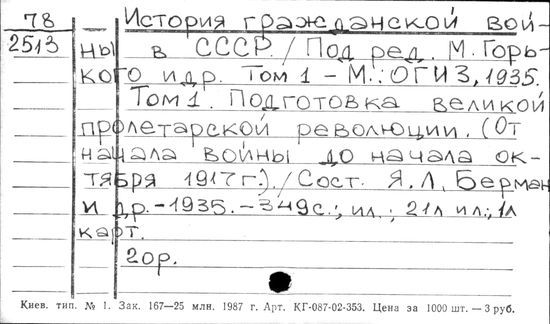 78
2513
История гражданской вой-
ны в СССР. / Под ред. М. Горь-
кого и др. Том 1 - М.: ОГИЗ, 1935.
Том 1. Подготовка великой
пролетарской революции. (От
начала войны до начала ок-
тября 1917 г.). / Сост. Я.Л. Берман
и др. - 1935. - 349 с.; ил.; 21л ил.; 1л
карт.
20р.
Киев. тип. № 1. Зак. 167—25 млн. 1987 г. Арт. КГ-087-02-353. Цена за 1000 шт. — 3 руб.